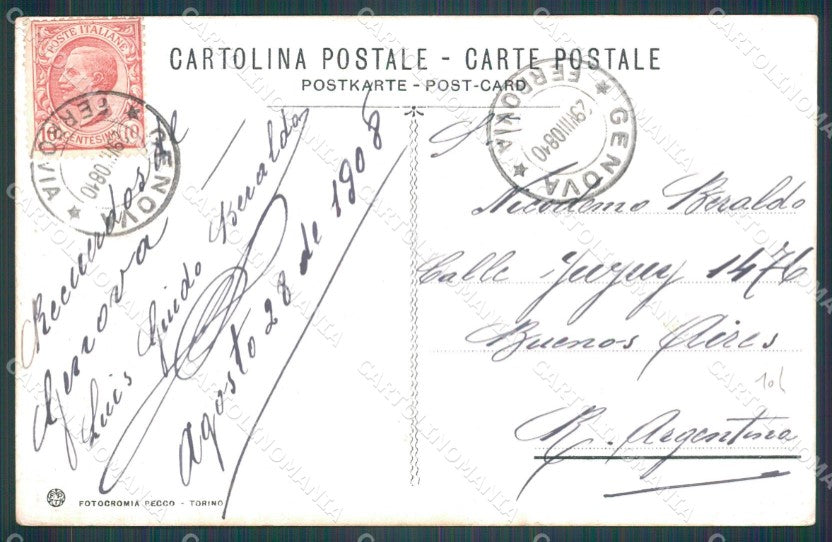 CARTOLINA POSTALE - CARTE POSTALE
POSTKARTE - POST-CARD
POSTE ITALIANE
CENTESIMI 10
GENOVA
FERROVIA
29 VIII 08 10
GENOVA
FERROVIA
29 VIII 08 10
Recuerdos de
Genova
Luis Guido Beraldo
Agosto 28 de 1908
S.
Nicodemo Beraldo
Calle Jujuy 1476
Buenos Aires
R. Argentina
FOTOCROMIA PECCO - TORINO
CARTOLINOMANIA